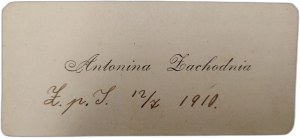 Antonina Zachodnia
Z. p. S. 12/X 1910.